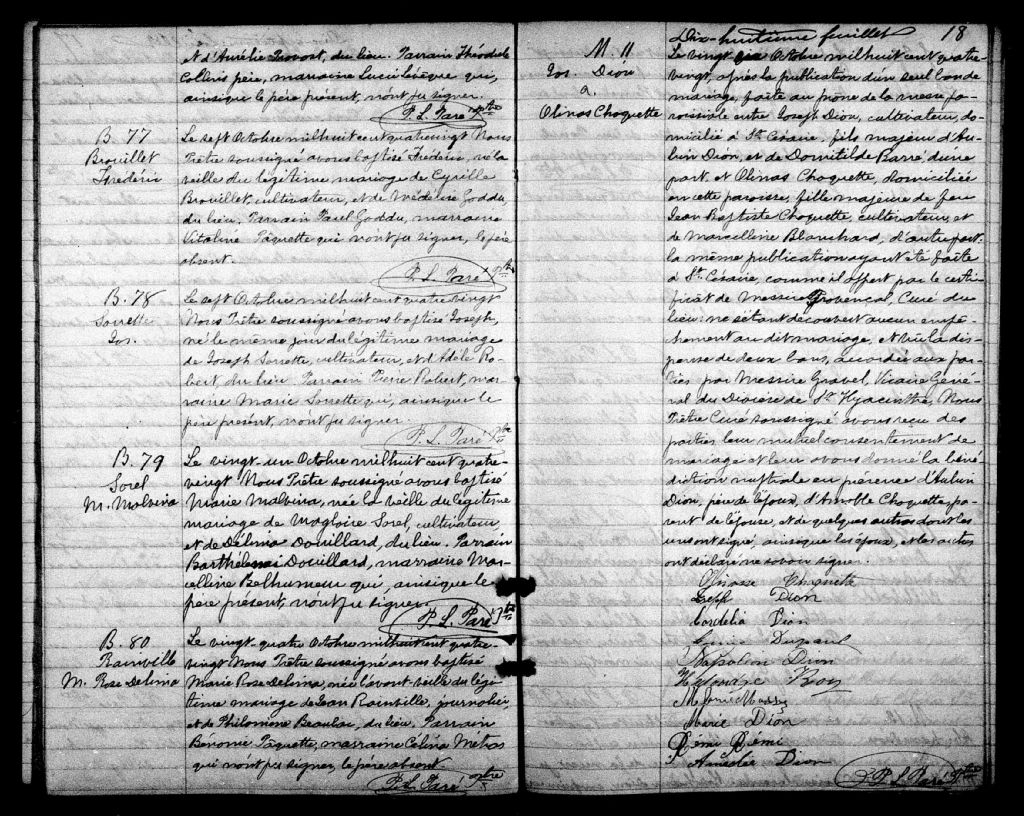 et d'Aurélie Provost, du lieu. Parrain Théodule
Collins père, marraine Lucie Lévêque qui,
ainsi que le père présent, n'ont pu signer.
P. L. Paré Ptre
B. 77
Brouillet
Frédéric
Le sept Octobre mil huit cent quatre vingt Nous
Prêtre soussigné avons baptisé Frédéric, né la
veille du légitime mariage de Cyrille
Brouillet, cultivateur, et de Médelise Goddu,
du lieu. Parrain Paul Goddu, marraine
Vitaline Paquette qui n'ont pu signer, le père
absent.
P. L. Paré Ptre
B. 78
Sorrette
Jos.
Le sept Octobre mil huit cent quatre vingt
Nous Prêtre soussigné avons baptisé Joseph,
né le même jour du légitime mariage
de Joseph Sorrette, cultivateur, et d'Adèle Ro-
bert du lieu. Parrain Pierre Robert, mar-
raine Marie Sorrette qui, ainsi que le
père présent, n'ont pu signer.
P. L. Paré Ptre
B. 79
Sorel
M. Malvina
Le vingt-un Octobre mil huit cent quatre-
vingt Nous Prêtre soussigné avons baptisé
Marie Malvina, née la veille du légitime
mariage de Magloire Sorel, cultivateur,
et de Délima Douillard, du lieu. Parrain
Barthélemi Douillard, marraine Mar-
celline Belhumeur qui, ainsi que le
père présent, n'ont pu signer.
P. L. Paré Ptre
B. 80
Rainville
M. Rose Delima
Le vingt-quatre Octobre mil huit cent quatre
vingt Nous Prêtre soussigné avons baptisé
Marie Rose Delima, née l'avant-veille du légi-
time mariage de Jean Rainville, journalier
et de Philomène Beaulac, du lieu. Parrain
Béronie Paquette, marraine Celina
qui n'ont pu signer, le père absent.
P. L. Paré Ptre
Dix-huitième feuillet 18
M 11
Jos. Dion
a.
Olinas Choquette
Le vingt Octobre mil huit cent quatre-
vingt, après la publication d'un seul ban de
mariage, faite au prône de la messe pa-
roissiale entre Joseph Dion, cultivateur, do-
micilié à St. Césaire, fils majeur d'Au-
bin Dion, et de Domitilde Barré d'une
part, et Olinas Choquette, domiciliée
en cette paroisse, fille majeure de feu
Jean Baptiste Choquette, cultivateur, et
de Marcelline Blanchard, d'autre part:
la même publication ayant été faite
à St. Césaire, comme il appert par le certi-
ficat de Messire Provençal, Curé du
lieu: ne s'étant découvert aucun empê-
chement au dit mariage, et vu la dis-
pense de deux bans, accordée aux par-
ties par Messire Gravel, Vicaire Géné-
ral du Diocèse de St. Hyacinthe, Nous
Prêtre Curé soussigné avons reçu des
parties leur mutuel consentement de
mariage et leur avons donné la béné-
diction nuptiale en présence d'Aubin
Dion, père de l'époux, d'Arnolle Choquette, pa-
rent de l'épouse, et de quelques autres dont les
uns ont signé, ainsi que les époux, et les autres
ont déclaré ne savoir signer.
Joseph Dion
Cordelia Dion
Louise Dupaul
Napoléon Dion
Marie Dion
Rémi Rémi
Amédée Dion
P. L. Paré Ptre